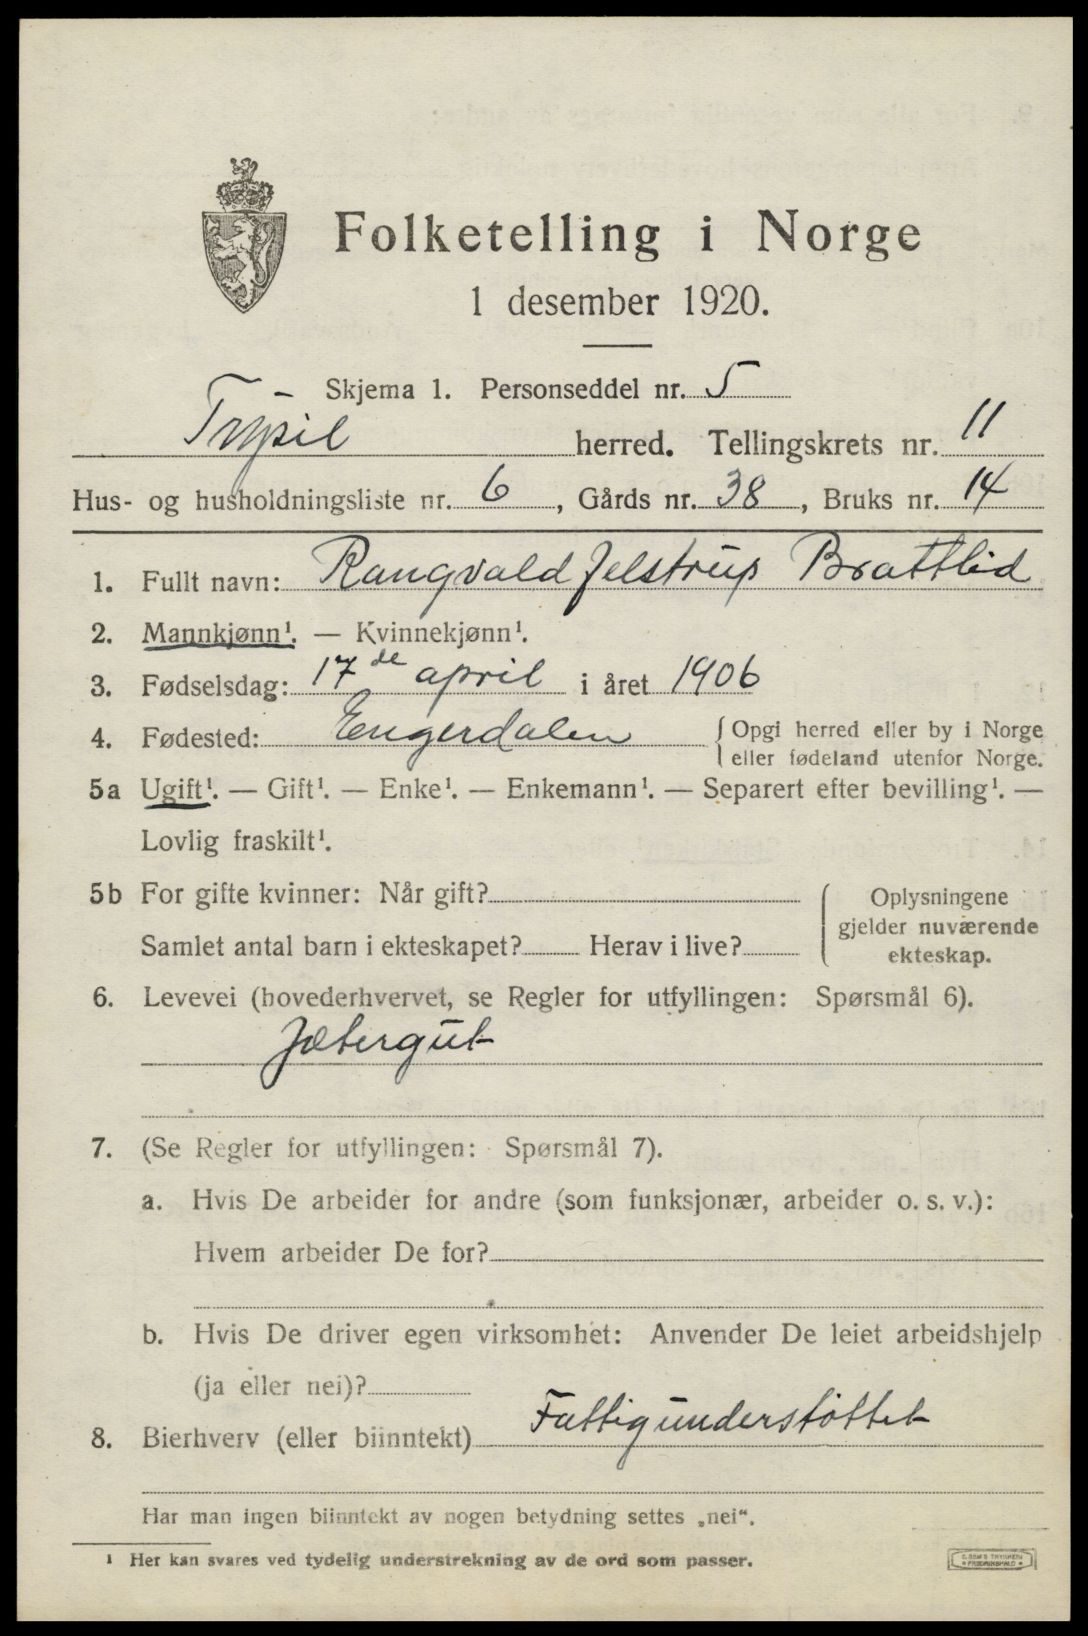 Folketelling i Norge
1 desember 1920.
Skjema 1. Personseddel nr. 5
Trysil herred. Tellingskrets nr. 11
Hus- og husholdningsliste nr. 6, Gårds nr. 38, Bruks nr. 14
1. Fullt navn: Rangvald Jelstrup Brattlid
2. Mannkjønn¹. — Kvinnekjønn¹.
3. Fødselsdag: 17de april i året 1906
4. Fødested: Engerdalen { Opgi herred eller by i Norge
eller fødeland utenfor Norge.
5a Ugift¹. — Gift¹. — Enke¹. — Enkemann¹. — Separert efter bevilling¹. —
Lovlig fraskilt¹.
5b For gifte kvinner: Når gift?
Samlet antal barn i ekteskapet? Herav i live?
Oplysningene
gjelder nuværende
ekteskap.
6. Levevei (hovederhvervet, se Regler for utfyllingen: Spørsmål 6).
Jætergut
7. (Se Regler for utfyllingen: Spørsmål 7).
a. Hvis De arbeider for andre (som funksjonær, arbeider o. s. v.):
Hvem arbeider De for?
b. Hvis De driver egen virksomhet: Anvender De leiet arbeidshjelp
(ja eller nei)?
8. Bierhverv (eller biinntekt) Fattigunderstöttet
Har man ingen biinntekt av nogen betydning settes „nei“.
¹ Her kan svares ved tydelig understrekning av de ord som passer.